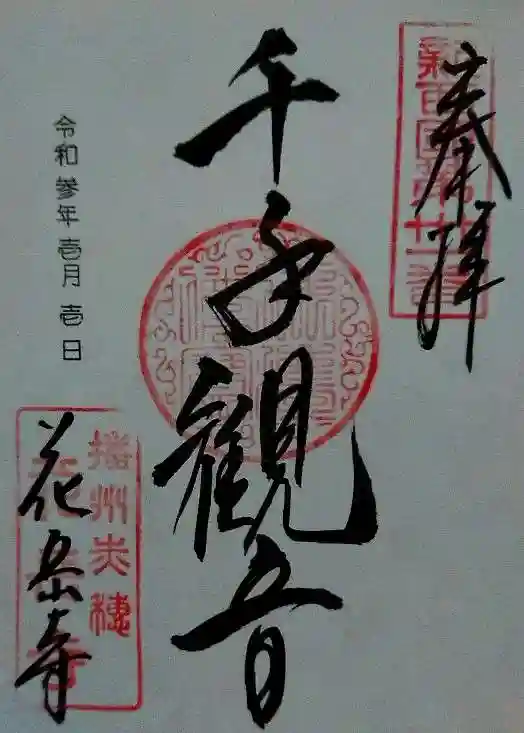 奉拝
新西国第廿一番
千手観音
令和参年壱月壱日
播州赤穂
花岳寺
花岳寺